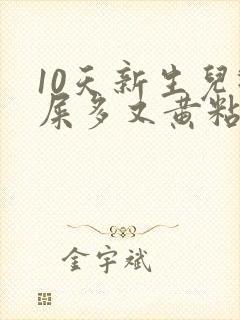 10天新生兒
屎多又黄粘
金宇斌